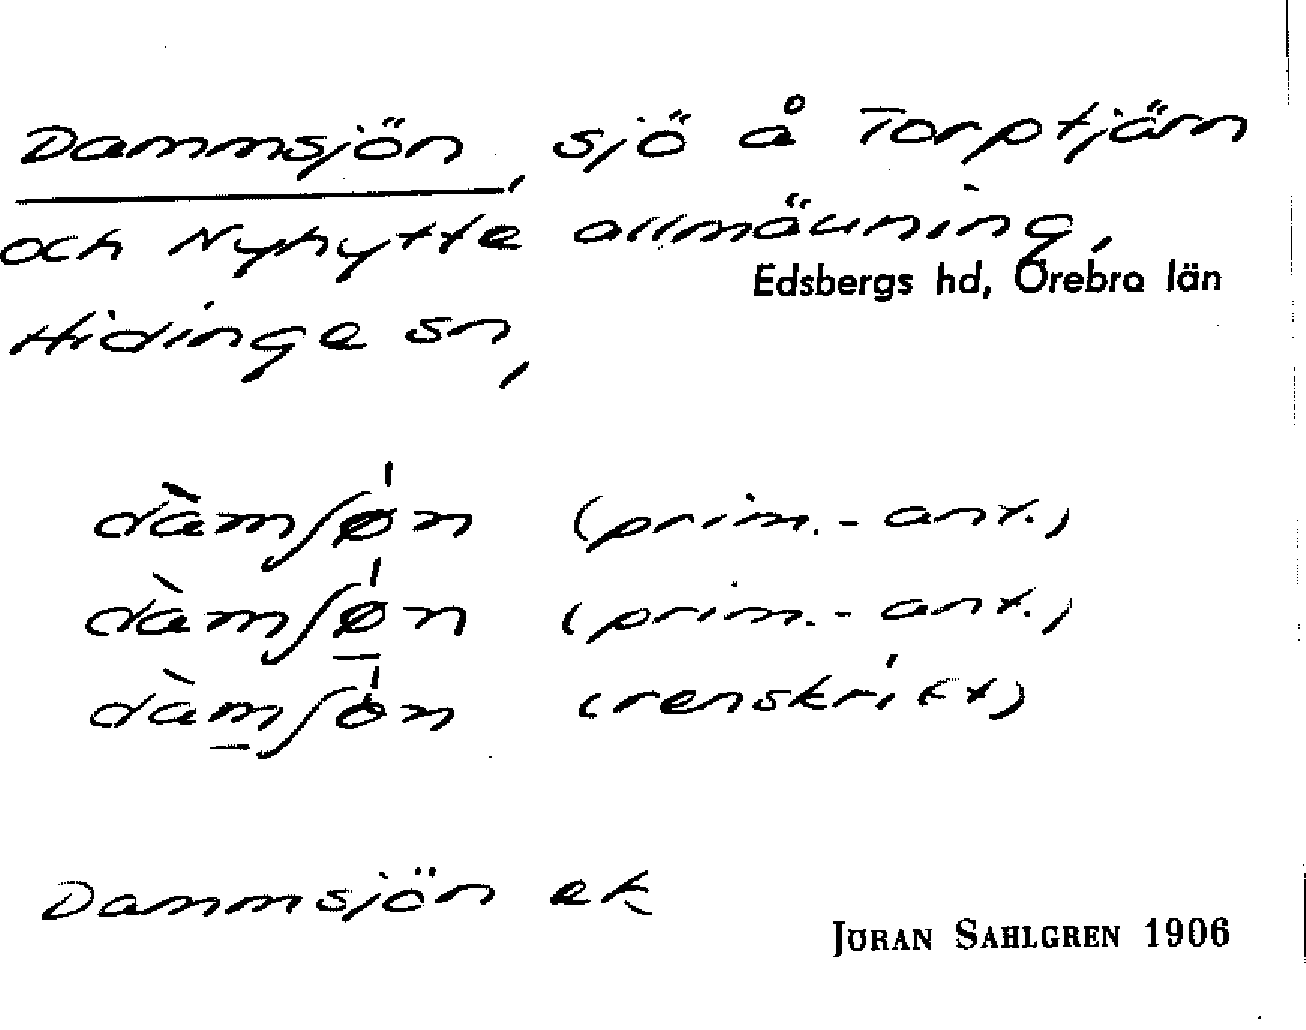 Dammsjön, sjö å Torptjärn
och Nyhytte allmänning,
Edsbergs hd, Örebro län
Hidinge sn,
dàmʃø̀n (prim.-ant.)
dàmʃø̀n (prim.-ant.)
dàmʃòn (renskrift)
Dammsjön ek
JÖRAN SAHLGREN 1906